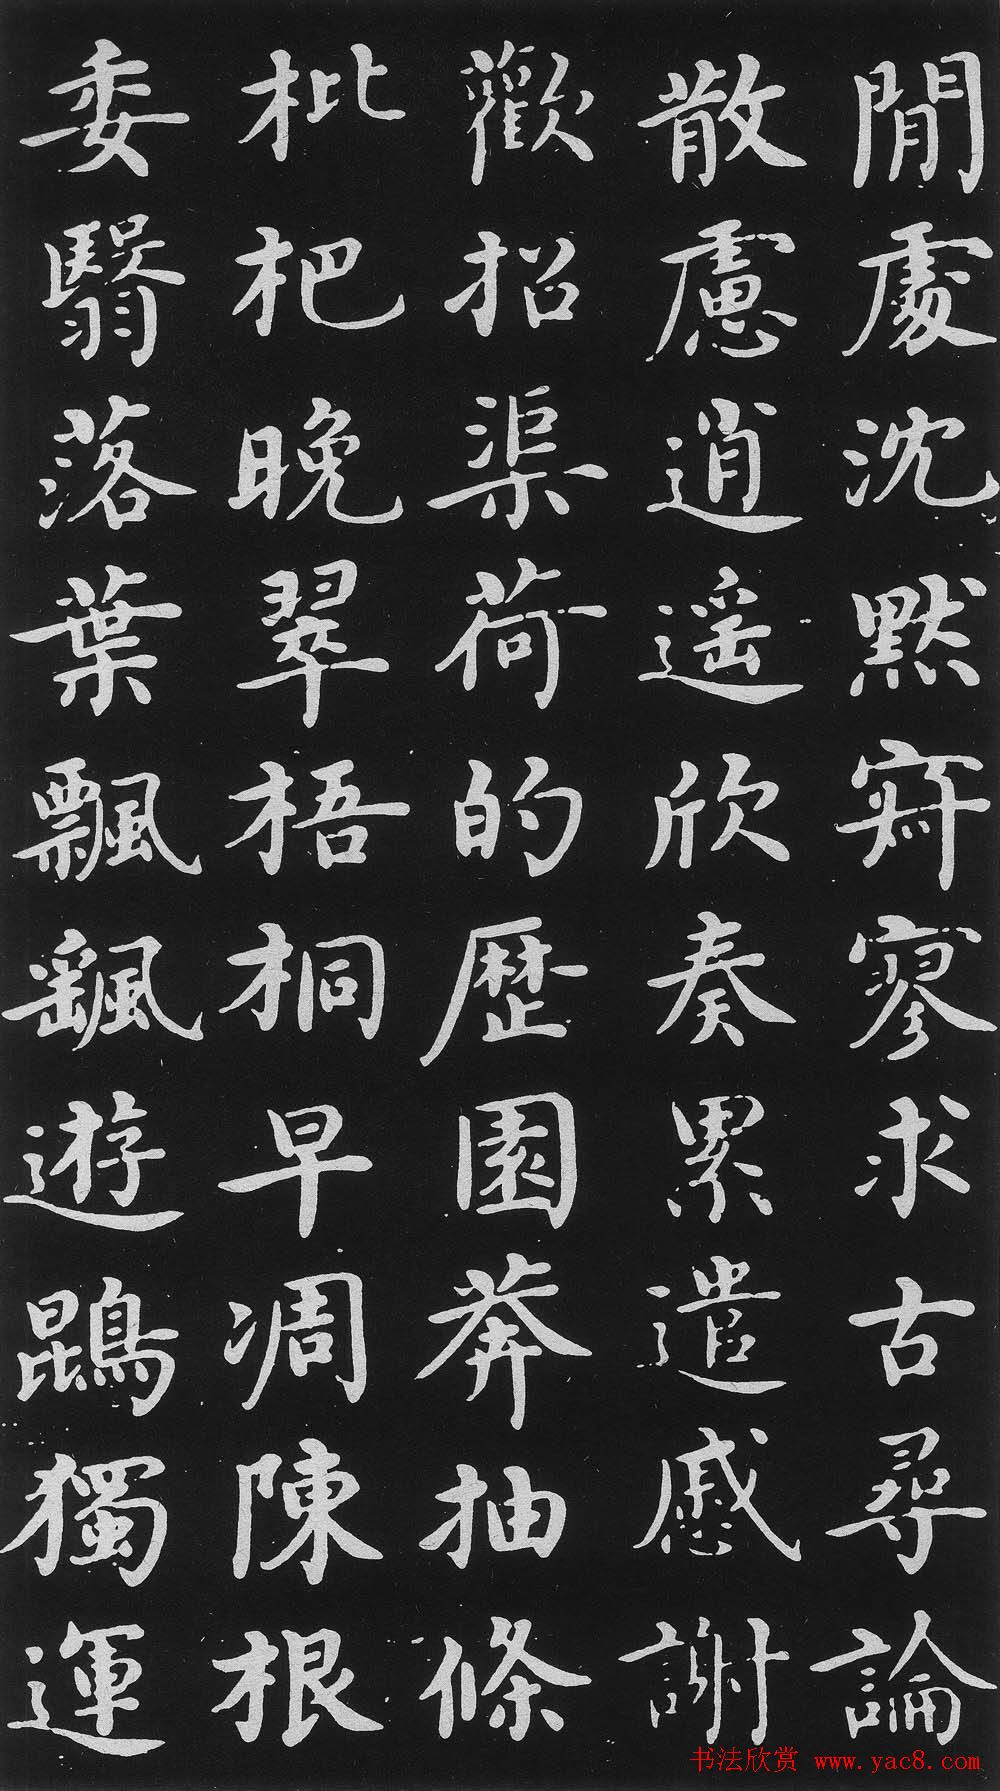 閒處沈默寂寥求古尋論
散慮逍遥欣奏累遣慼謝
歡招渠荷的歷園莽抽條
枇杷晚翠梧桐早凋陳根
委翳落葉飄颻遊鵾獨運
书法欣赏 www.yac8.com